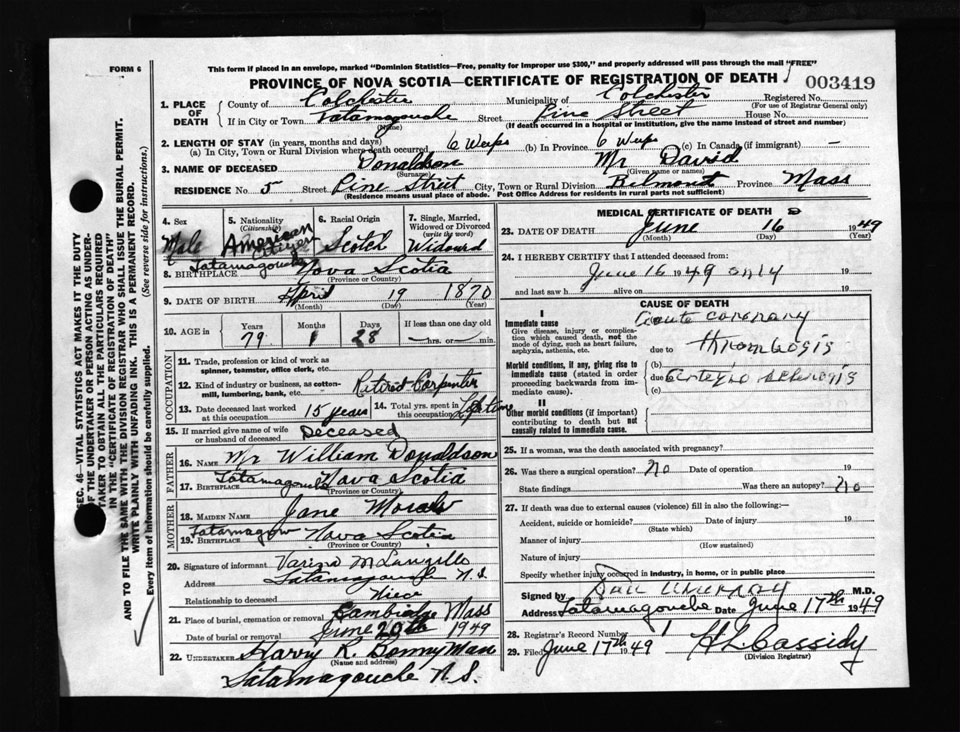 FORM 6
This form if placed in an envelope, marked "Dominion Statistics—Free, penalty for improper use $300," and properly addressed will pass through the mail "FREE"
PROVINCE OF NOVA SCOTIA—CERTIFICATE OF REGISTRATION OF DEATH
003419
1. PLACE OF DEATH
County of Colchester Municipality of Colchester Registered No.
(For use of Registrar General only)
If in City or Town Tatamagouche Street Pine Street House No.
(Name) (If death occurred in a hospital or institution, give the name instead of street and number)
2. LENGTH OF STAY (in years, months and days)
(a) In City, Town or Rural Division where death occurred 6 Weeks (b) In Province 6 Weeks (c) In Canada (if immigrant) —
3. NAME OF DECEASED Donaldson Mr David
(Surname) (Given name or names)
RESIDENCE No. 5 Street Pine Street City, Town or Rural Division Belmont Province Mass
(Residence means usual place of abode. Post Office Address for residents in rural parts not sufficient)
4. Sex Male
5. Nationality (Citizenship) American Citizen
6. Racial Origin Scotch
7. Single, Married, Widowed or Divorced (write the word) Widowed
8. BIRTHPLACE Tatamagouche Nova Scotia
(Province or Country)
9. DATE OF BIRTH April 19 1870
(Month) (Day) (Year)
10. AGE in Years Months Days If less than one day old
79 1 28 — hrs. or — min.
OCCUPATION
11. Trade, profession or kind of work as spinner, teamster, office clerk, etc.
12. Kind of industry or business, as cotton-mill, lumbering, bank, etc. Retired Carpenter
13. Date deceased last worked at this occupation 15 years
14. Total yrs. spent in this occupation Lifetime
15. If married give name of wife or husband of deceased Deceased
FATHER
16. Name Mr William Donaldson
17. Birthplace Tatamagouche Nova Scotia
MOTHER
18. Maiden Name Jane
19. Birthplace Nova Scotia
(Province or Country)
20. Signature of informant
Address Tatamagouche N.S.
Relationship to deceased Niece
21. Place of burial, cremation or removal Cambridge Mass
Date of burial or removal June 20th 1949
22. UNDERTAKER Harry R. Bonnyman
(Name and address)
Tatamagouche N.S.
MEDICAL CERTIFICATE OF DEATH
23. DATE OF DEATH June 16 1949
(Month) (Day) (Year)
24. I HEREBY CERTIFY that I attended deceased from
June 16 1949 only 19
and last saw h alive on 19
CAUSE OF DEATH
I
Immediate cause
Give disease, injury or complication which caused death, not the mode of dying, such as heart failure, asphyxia, asthenia, etc.
(a) Acute coronary
due to thrombosis
Morbid conditions, if any, giving rise to immediate cause (stated in order proceeding backwards from immediate cause).
(b)
due to arterio sclerosis
(c)
II
Other morbid conditions (if important) contributing to death but not causally related to immediate cause.
25. If a woman, was the death associated with pregnancy?
26. Was there a surgical operation? no Date of operation 19
State findings Was there an autopsy? no
27. If death was due to external causes (violence) fill in also the following:—
Accident, suicide or homicide? Date of injury 19
(State which)
Manner of injury
(How sustained)
Nature of injury
Specify whether injury occurred in industry, in home, or in public place
Signed by Dan Murray M.D.
Address Tatamagouche Date June 17th 1949
28. Registrar's Record Number 1
29. Filed June 17th 1949 H L Cassidy
(Division Registrar)
SEC. 46—VITAL STATISTICS ACT MAKES IT THE DUTY
OF THE UNDERTAKER OR PERSON ACTING AS UNDERTAKER TO OBTAIN ALL THE PARTICULARS REQUIRED
IN THE "CERTIFICATE OF REGISTRATION OF DEATH"
AND TO FILE THE SAME WITH THE DIVISION REGISTRAR WHO SHALL ISSUE THE BURIAL PERMIT.
WRITE PLAINLY WITH UNFADING INK. THIS IS A PERMANENT RECORD.
Every item of information should be carefully supplied. (See reverse side for instructions.)